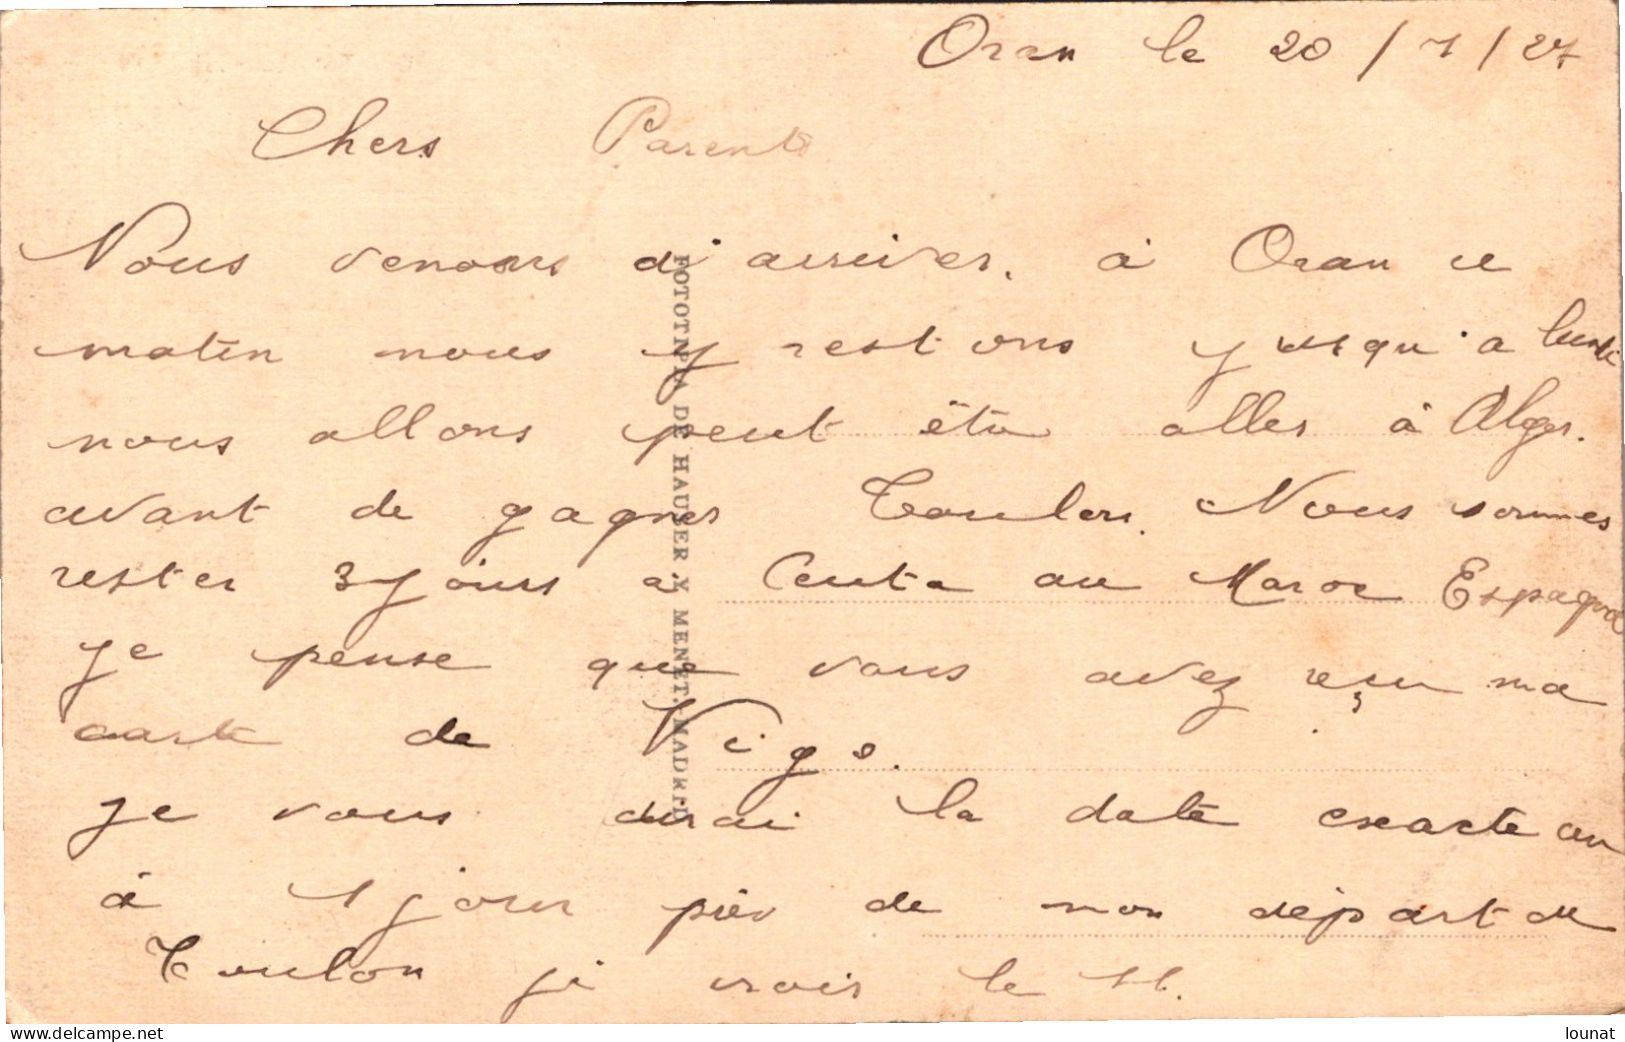 Oran le 20/7/27
Chers Parents
Nous venons d'arriver. à Oran ce
matin nous y restons jusqu'a lundi
nous allons peut être aller à Alger.
avant de gagner Toulon. Nous sommes
rester 3 jours à Ceuta au Maroc Espagnol
je pense que vous avez reçu ma
carte de Vigo.
je vous dirai la date exacte ou
à 1 jour près de mon départ de
Toulon je crois le 11.
FOTOTIPIA DE HAUSER Y MENET.-MADRID
https://www.delcampe.net
lounat